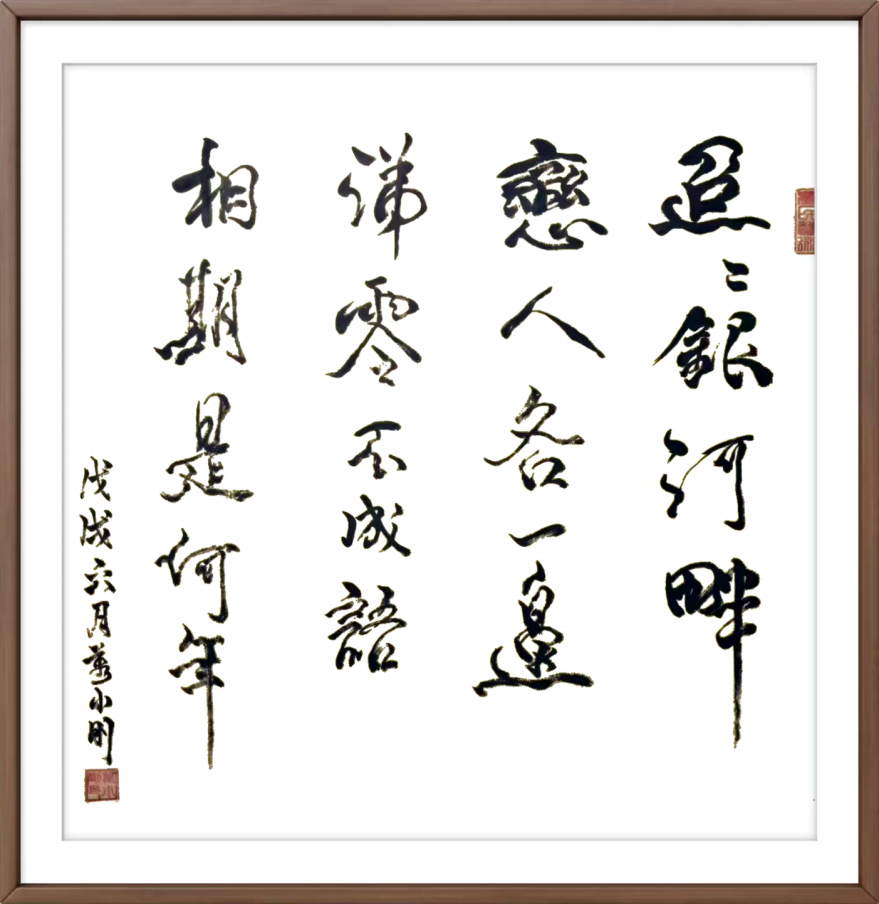 迢〻銀河畔
戀人各一邊
涕零不成語
相期是何年
戊戌六月萬小